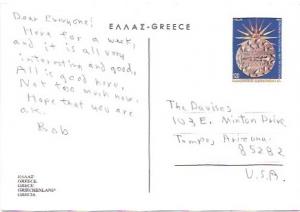 Dear Everyone!
ΕΛΛΑΣ-GREECE
Here for a week,
and it is all very
interesting and good,
All is good here,
Not too much now.
Hope that you are
ok.
Bob
The Davises
103 E. Minton Drive
Tempe, Arizona.
85282
U.S.A.
ΕΛΛΑΣ
GREECE
GRECE
GRIECHENLAND
GRECIA